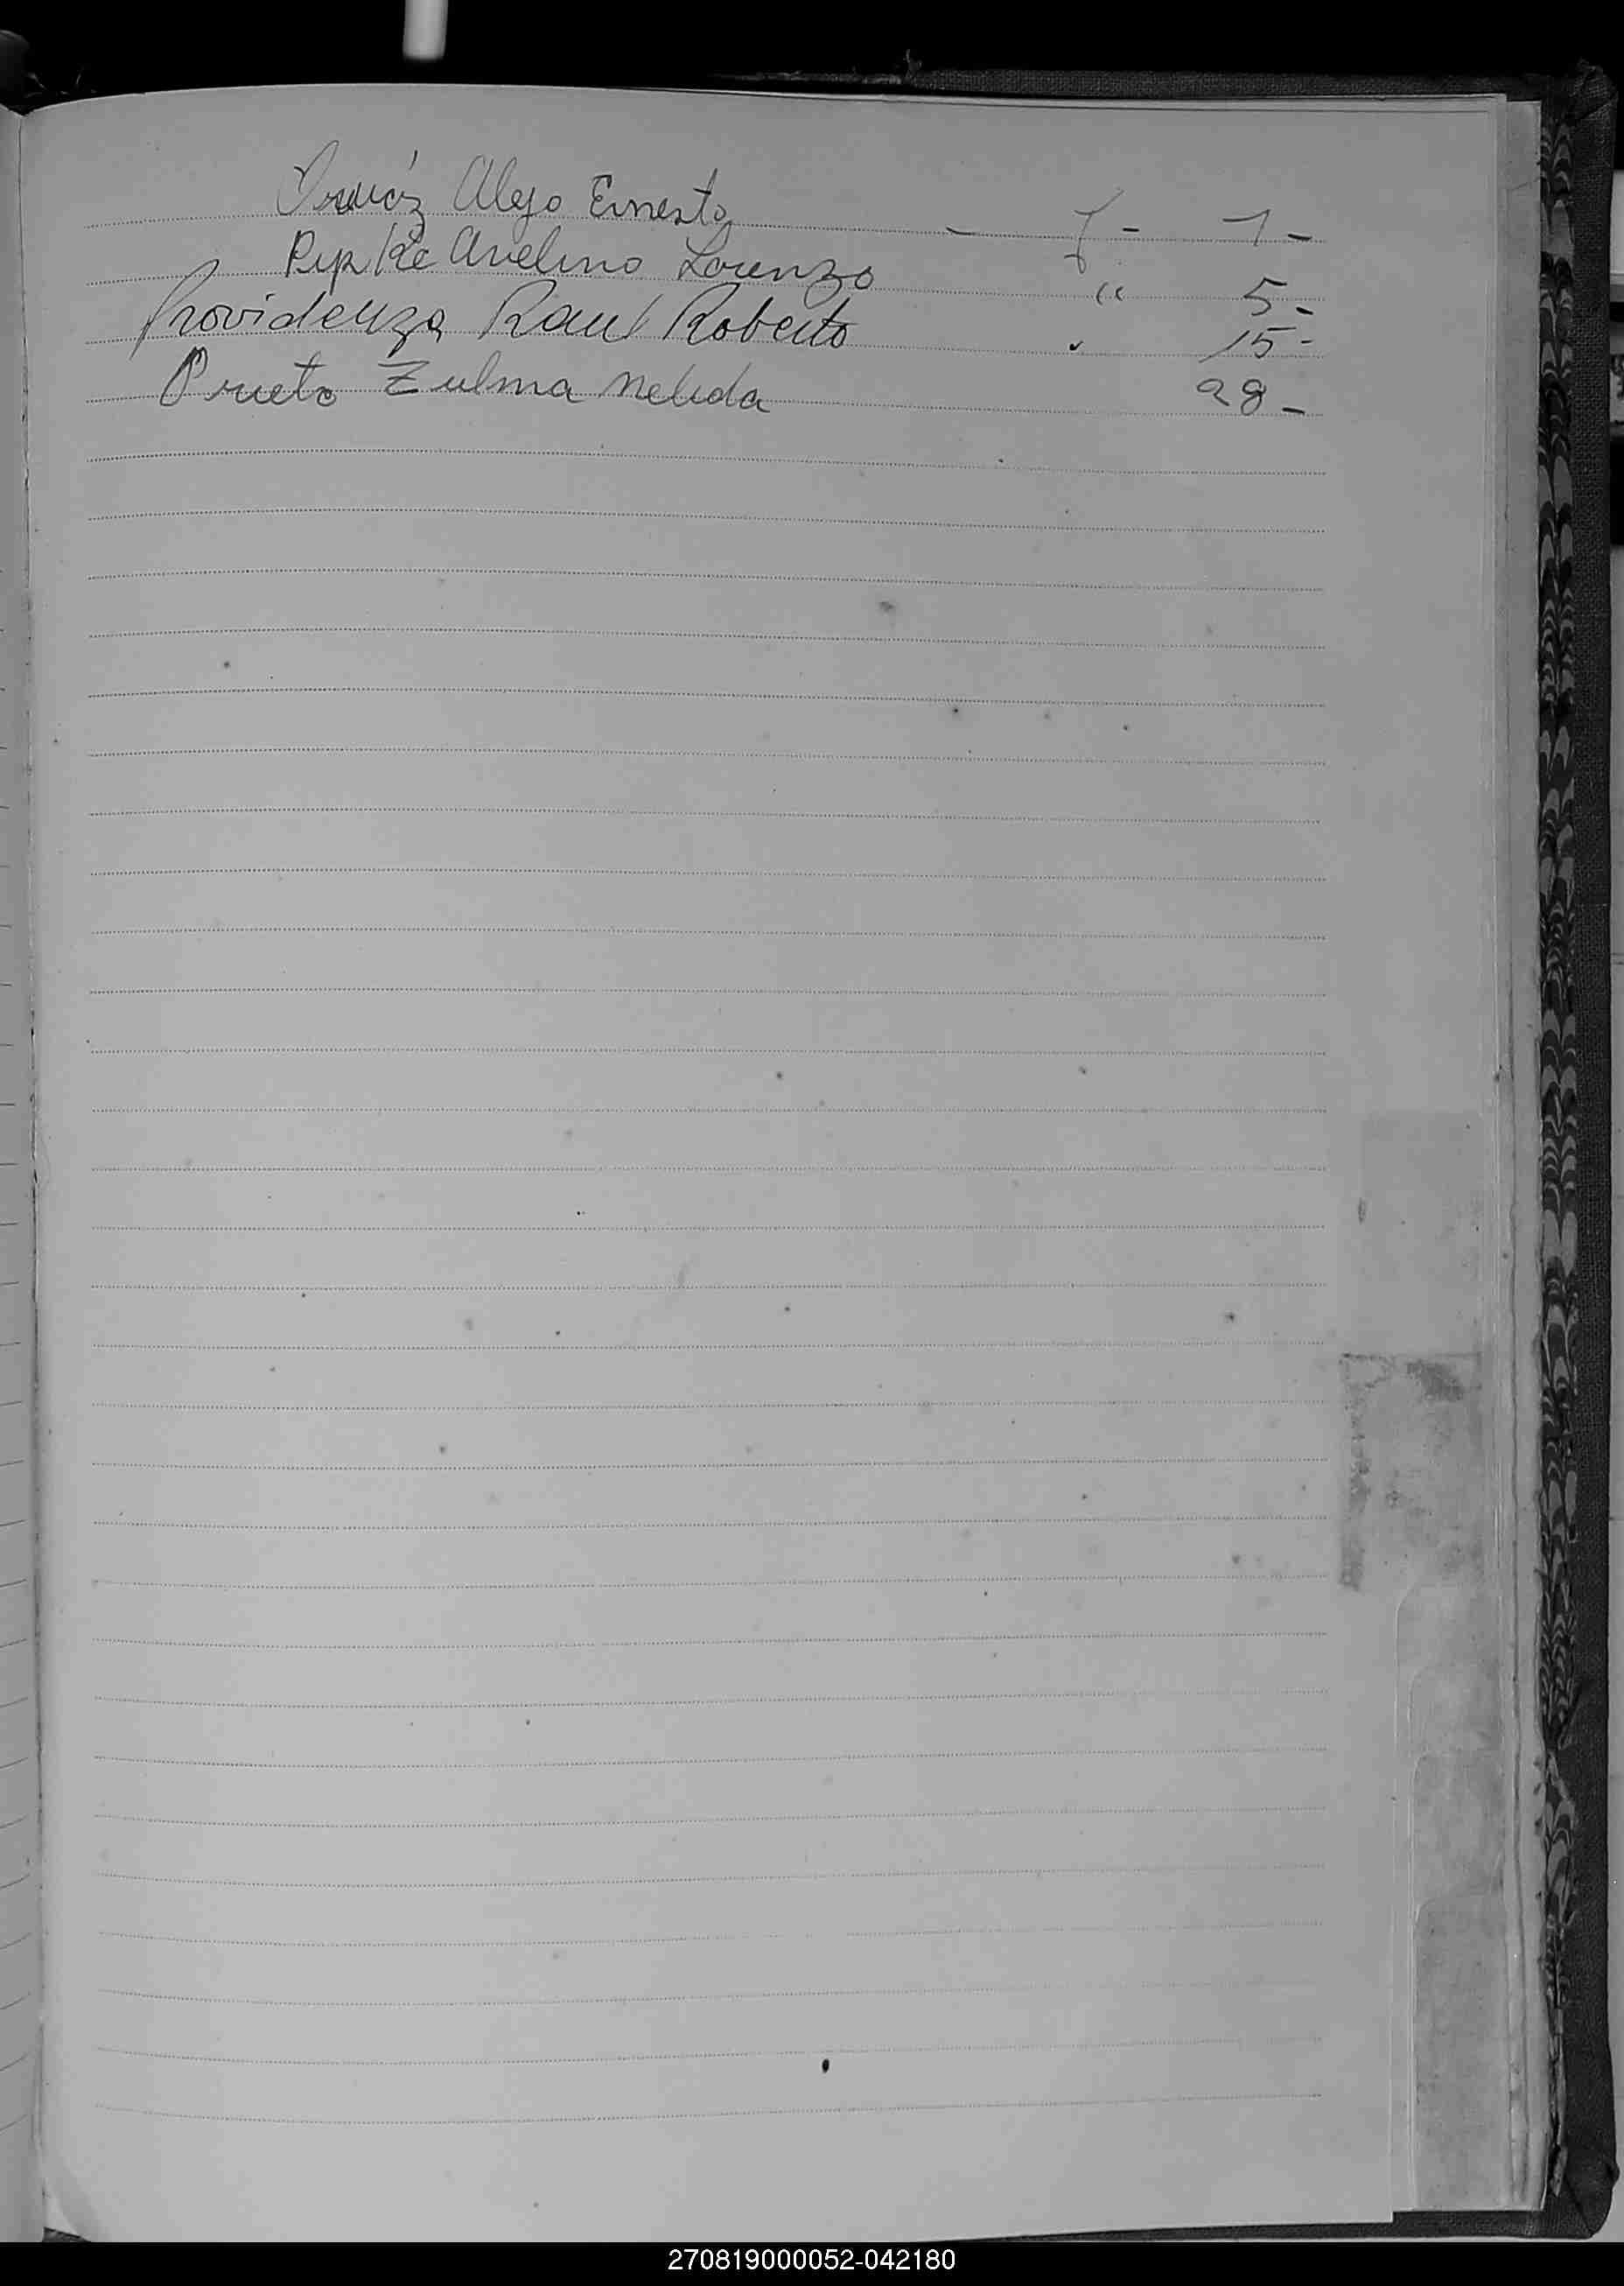 Alejo Ernesto - f - 1 -
Pipke Avelino Lorenzo " 5 -
Providenza Raul Roberto " 15 -
Prieto Zulma Nelida 28 -
270819000052-042180